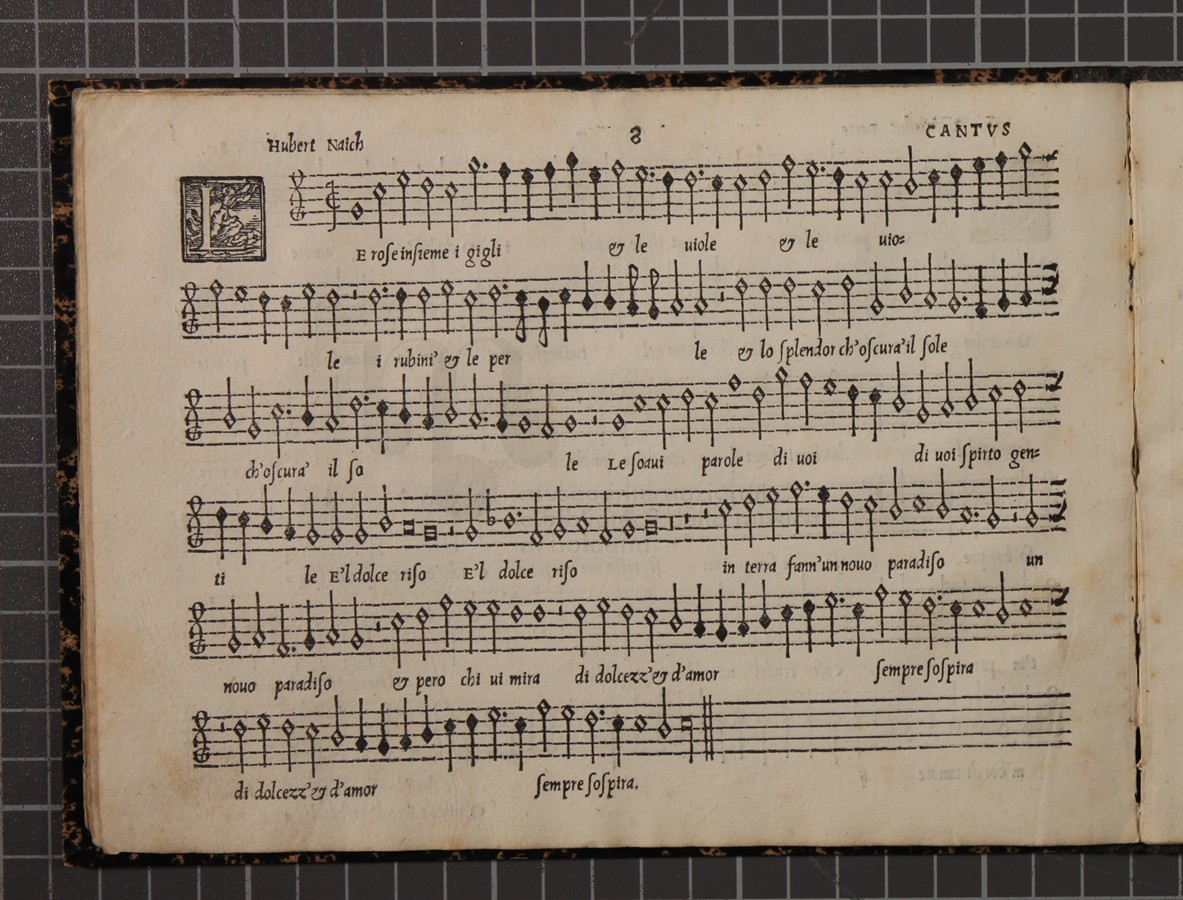 Hubert Naich 8 CANTVS
L E roſe inſieme i gigli & le uiole & le uio=
le i rubini' & le per le & lo ſplendor ch'oſcura'il ſole
ch'oſcura' il ſo le Le ſoaui parole di uoi di uoi ſpirto gen=
ti le E'l dolce riſo E'l dolce riſo in terra fann'un nouo paradiſo un
nouo paradiſo & pero chi ui mira di dolcezz'& d'amor ſempre ſoſpira
di dolcezz'& d'amor ſempre ſoſpira.